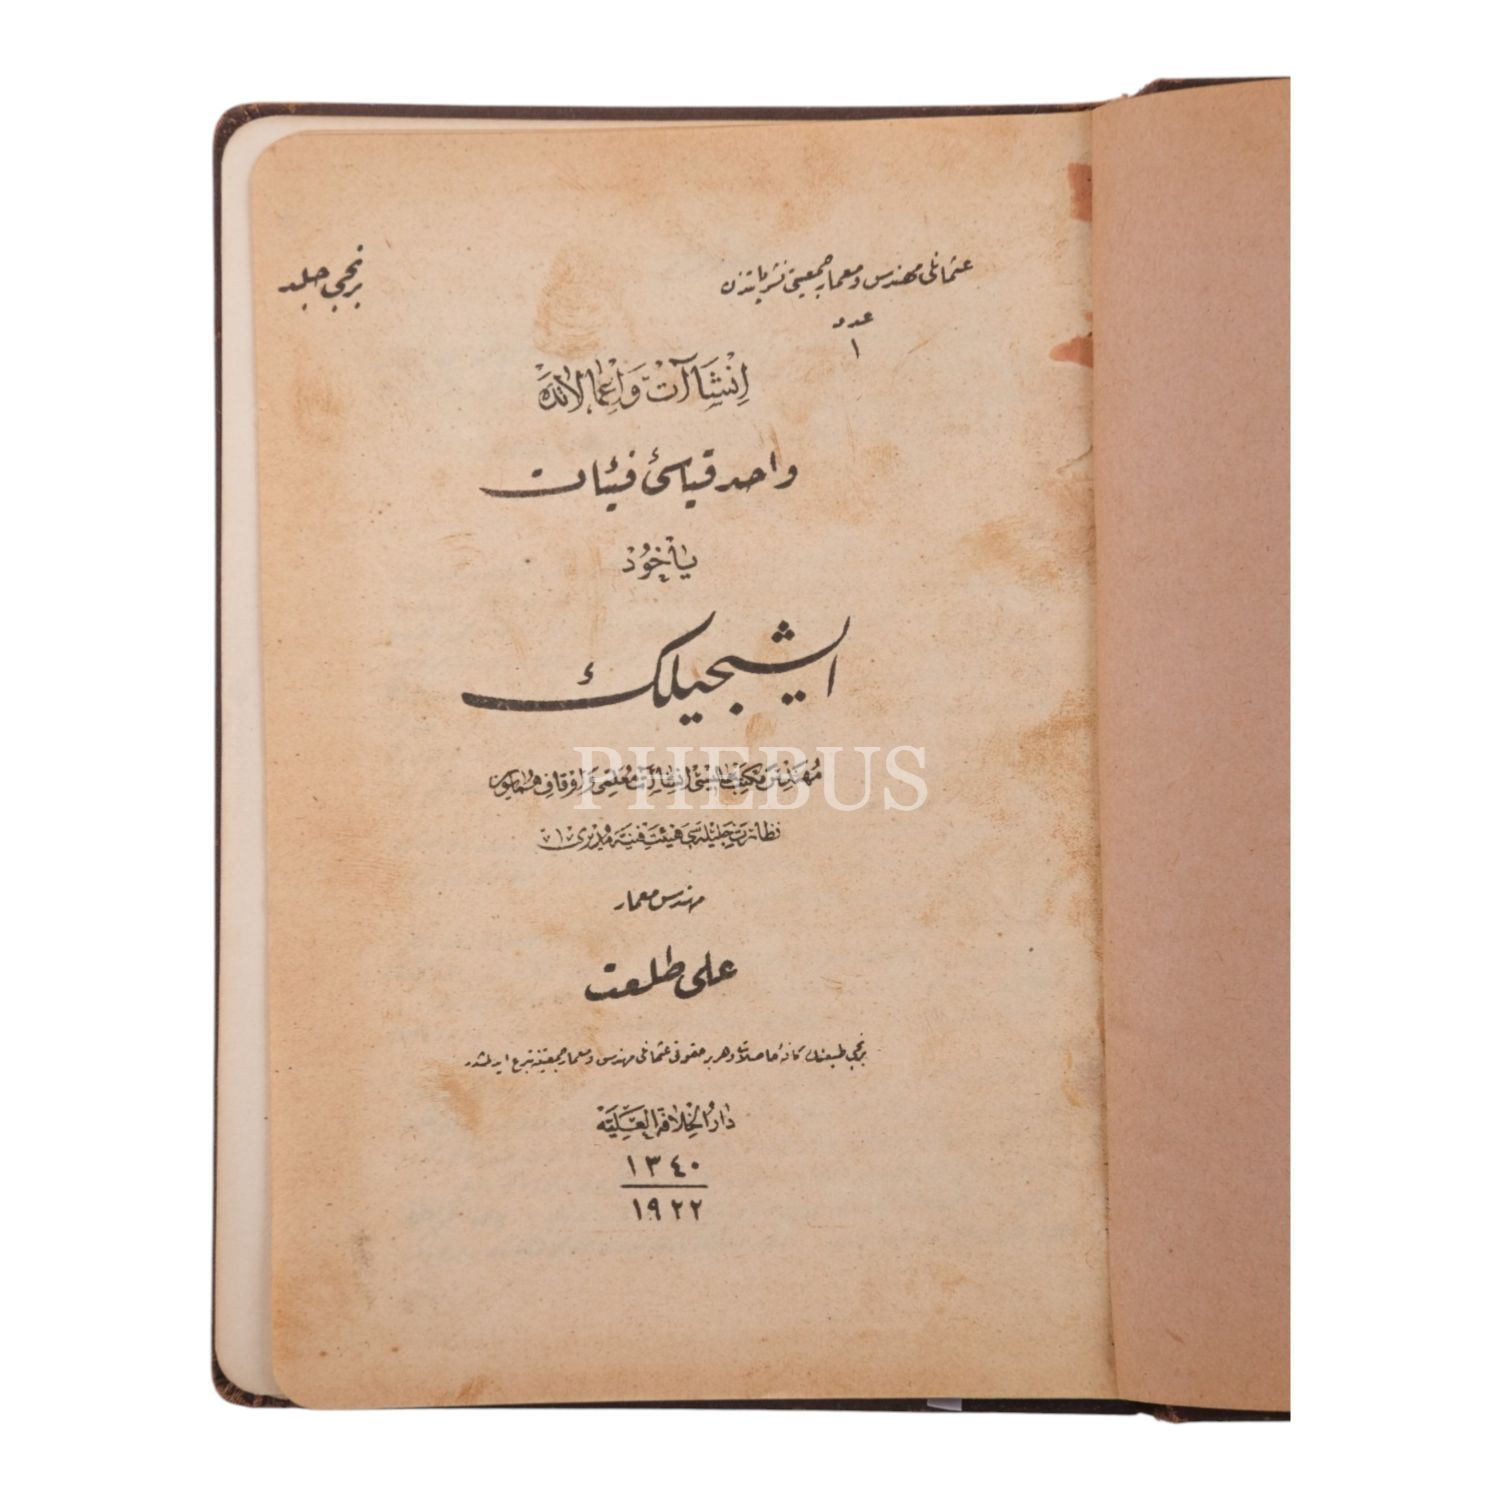 عثمانلى مهندس و معمار جمعيتى نشرياتندن
عدد
١
برنجى جلد
إنشاآت وإعمالاتده
واحد قياسئ فيئات
ياخود
ايشجيلك
مهندس مكتب عاليسى إنشاآت معلمى و اوقاف همايون
نظارت جليله سى هيئت فنيه مديرى
مهندس معمار
على طلعت
برنجى طبعنك كافهٔ حاصلات و هر بر حقوقى عثمانلى مهندس و معمار جمعيتنه تبرع ايدلمشدر
دار الخلافة العلية
١٣٤٠
١٩٢٢
PHEBUS